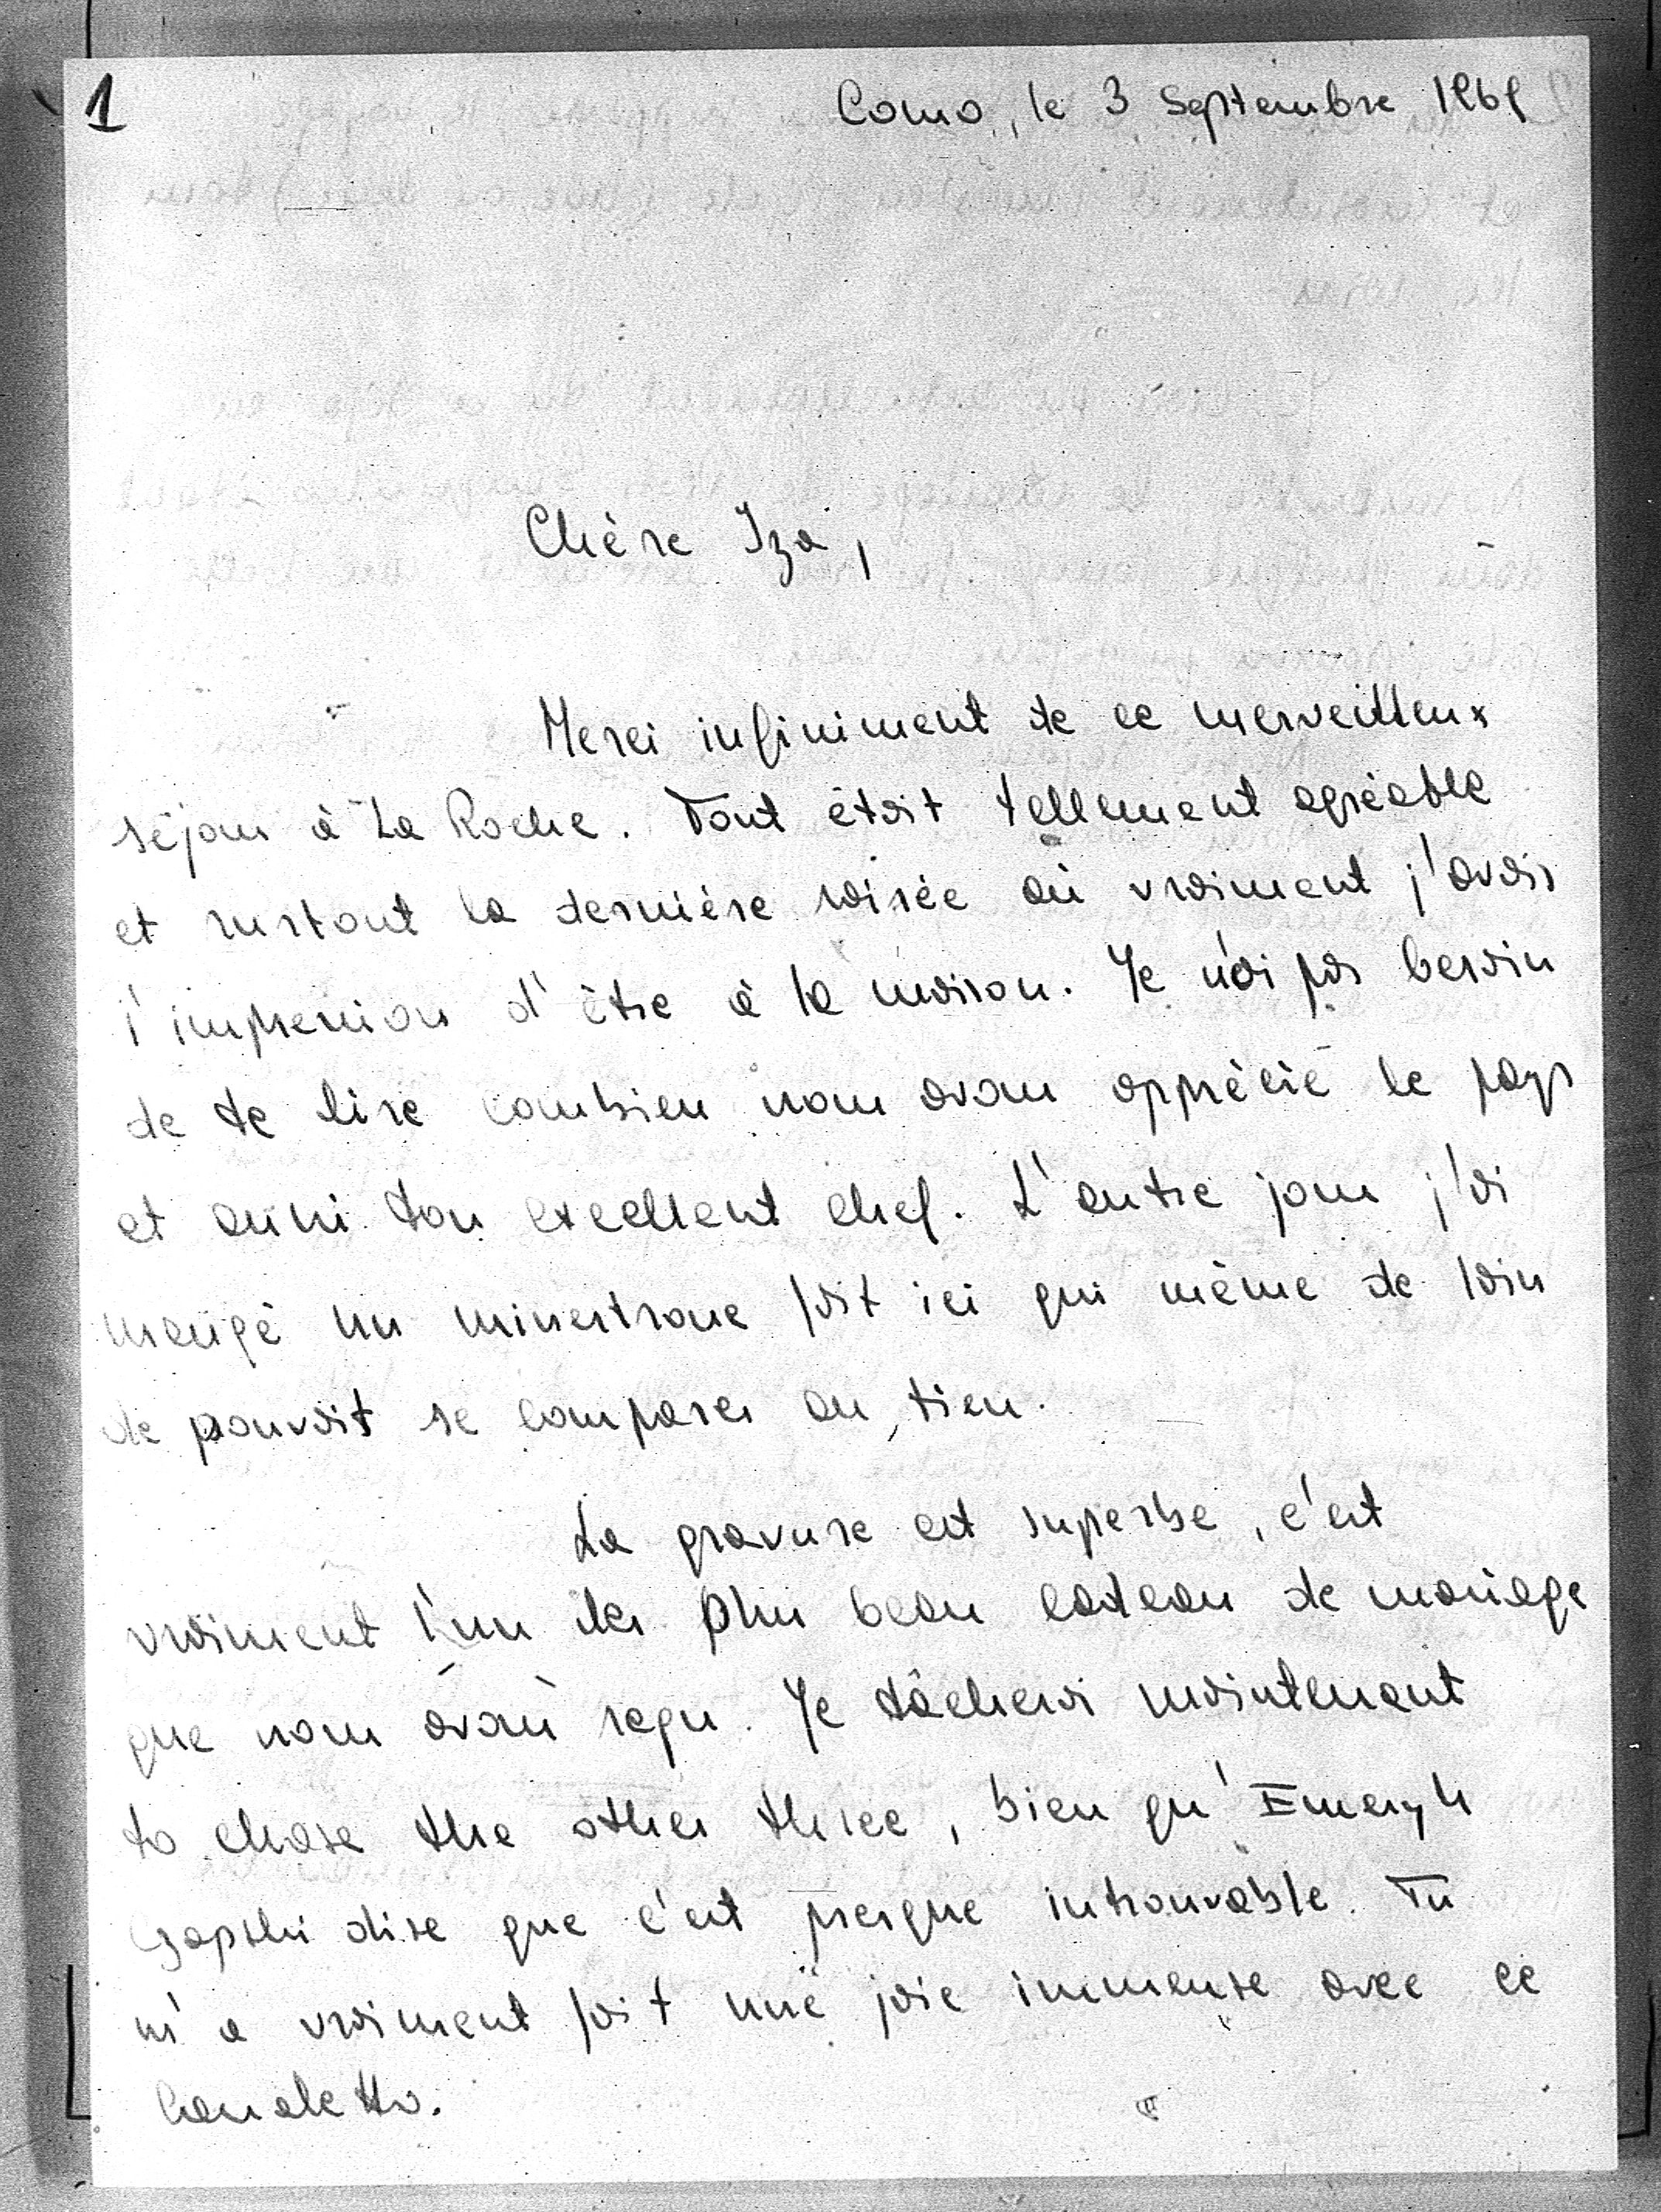 1
Como, le 3 Septembre 1969
Chère Iza,
Merci infiniment de ce merveilleux
séjour à La Roche. Tout était tellement agréable
et surtout la dernière soirée où vraiment j'avais
l'impression d'être à la maison. Je n'ai pas besoin
de te dire combien nous avons apprécié le pays
et aussi ton excellent chef. L'autre jour j'ai
mangé un minestrone fait ici qui même de loin
ne pouvait se comparer au tien.
La gravure est superbe, c'est
vraiment l'un des plus beau cadeau de mariage
que nous avons reçu. Je tâcherai maintenant
to chase the other three, bien qu'Emeryk
Czapski dise que c'est presque introuvable. Tu
m'a vraiment fait une joie immense avec ce
Canaletto.